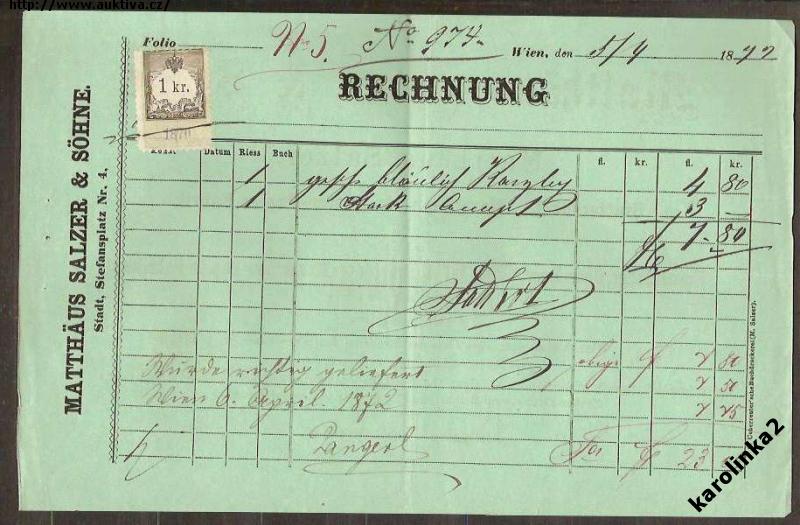 http://www.auktiva.cz/
Folio
No 5. No 974.
Wien, den 5/4 1872
RECHNUNG
1 kr.
1870
MATTHÄUS SALZER & SÖHNE.
Stadt, Stefansplatz Nr. 4.
Datum Riess Buch fl. kr. fl. kr.
1 bläulich Kanzley 4 80
1 3 —
7 80
Wurde richtig geliefert
Wien 6. April 1872
obige f 7 80
7 50
7 75
f 23
Ueberreuter'sche Buchdruckerei (M. Salzer).
karolinka2